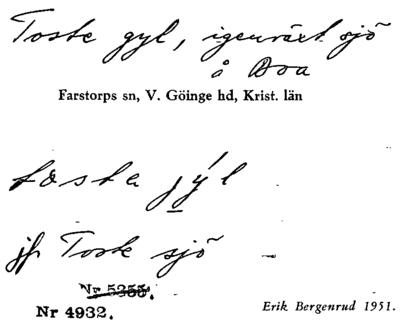 Toste gyl, igenväxt sjö
å Boa
Farstorps sn, V. Göinge hd, Krist. län
tosta jýl
jfr Toste sjö
Nr 5255.
Nr 4932.
Erik Bergenrud 1951.